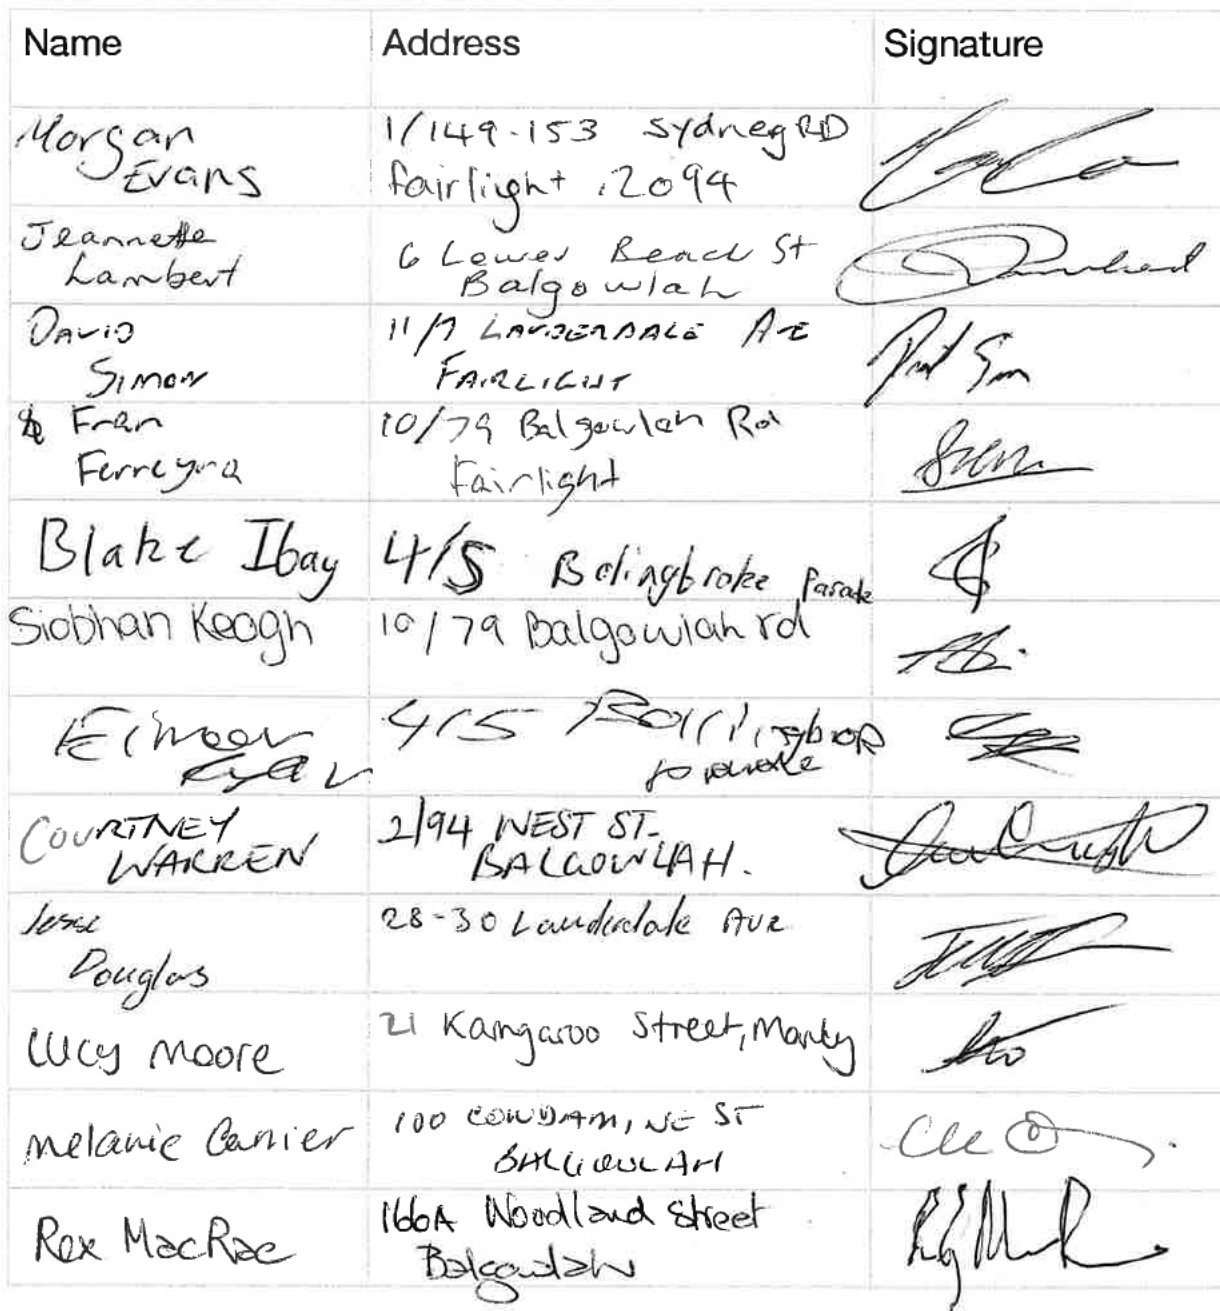 Name Address Signature
Morgan Evans
1/149-153 Sydney RD
fairlight 2094
Jeannette Lambert
6 Lower Beach St
Balgowlah
DAVID SIMON
11/7 LAUDERDALE AVE
FAIRLIGHT
Fran Ferreyra
10/79 Balgowlah Rd
Fairlight
Blake Ibay
4/5 Bolingbroke Parade
Siobhan Keogh
10/79 Balgowlah rd
4/5
COURTNEY WARREN
2/94 WEST ST.
BALGOWLAH.
Jesse Douglas
28-30 Lauderdale Ave
Lucy Moore
21 Kangaroo Street, Manly
Melanie
100 CONDAMINE ST
BALGOWLAH
Rex MacRae
166A Woodland Street
Balgowlah